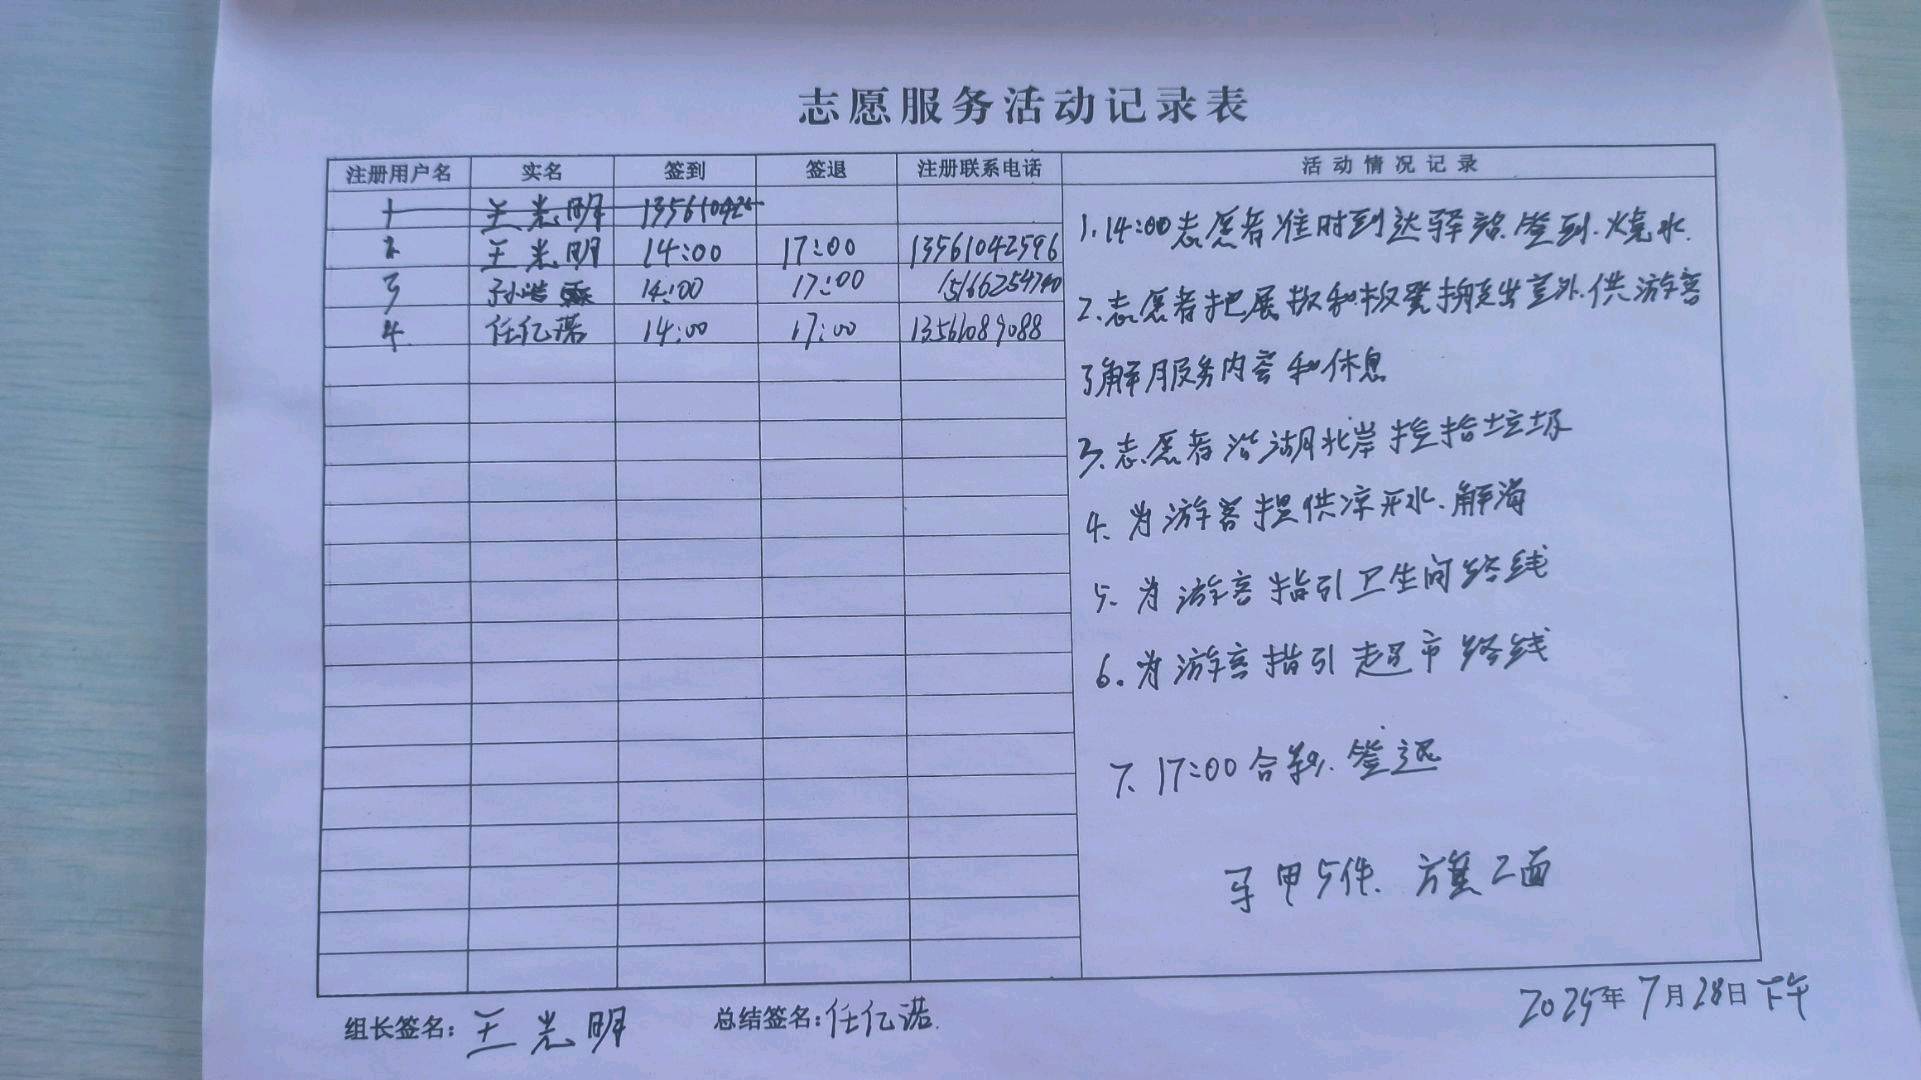 志愿服务活动记录表
注册用户名 实名 签到 签退 注册联系电话 活动情况记录
1 王光明 135610425
2 王光明 14:00 17:00 13561042596
3 孙浩 14:00 17:00 15166254740
4. 任亿诺 14:00 17:00 13561089088
1. 14:00志愿者准时到达驿站.签到.烧水.
2. 志愿者把展板和板凳搬至出室外.供游客
了解服务内容和休息
3. 志愿者沿湖北岸捡拾垃圾
4. 为游客提供凉开水.解渴
5. 为游客指引卫生间路线
6. 为游客指引超市路线
7. 17:00合影.签退
马甲5件. 方旗2面
组长签名: 王光明 总结签名: 任亿诺.
2025年7月28日下午